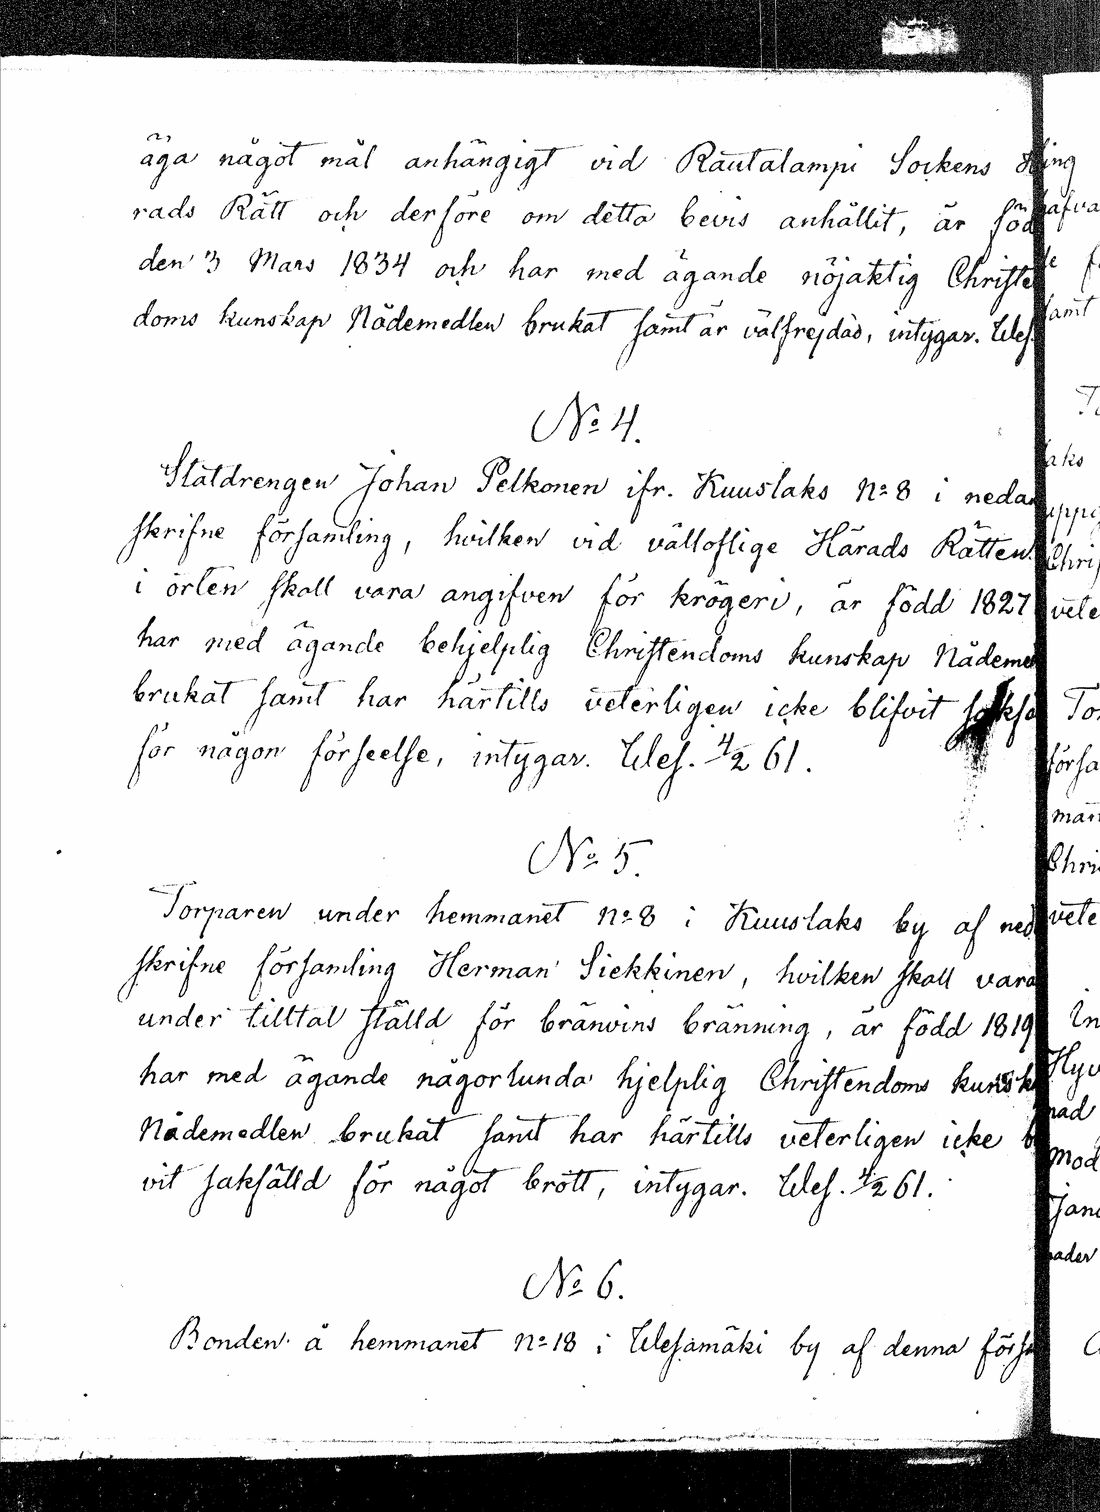 äga något mål anhängigt vid Rautalampi Sockens Hä
rads Rätt och derföre om detta bevis anhållit, är föd
den 3 Mars 1834 och har med ägande nöjaktig Christe
doms kunskap Nådemedlen brukat samt är välfrejdad, intygar. Wes.
No 4.
Statdrengen Johan Pelkonen ifr. Kuuslaks No 8 i nedan
skrifne församling, hvilken vid välloflige Härads Rätten
i orten skall vara angifven för krögeri, är född 1827
har med ägande behjelplig Christendoms kunskap Nådeme
brukat samt har härtills veterligen icke blifvit sakfä
för någon förseelse, intygar. Wes. 4/2 61.
No 5.
Torparen under hemmanet No 8 i Kuuslaks by af ned
skrifne församling Herman Siekkinen, hvilken skall vara
under tilltal ställd för bränvins bränning, är född 1819
har med ägande någorlunda hjelplig Christendoms kunsk
Nådemedlen brukat samt har härtills veterligen icke b
vit sakfälld för något brott, intygar. Wes. 4/2 61.
No 6.
Bonden å hemmanet No 18 i Wesamäki by af denna förs
ing
hafva
samt
laks
uppg
Chris
vete
Tor
försa
man
Chri
vete
In
Hyv
nad
Mod
Janu
nader